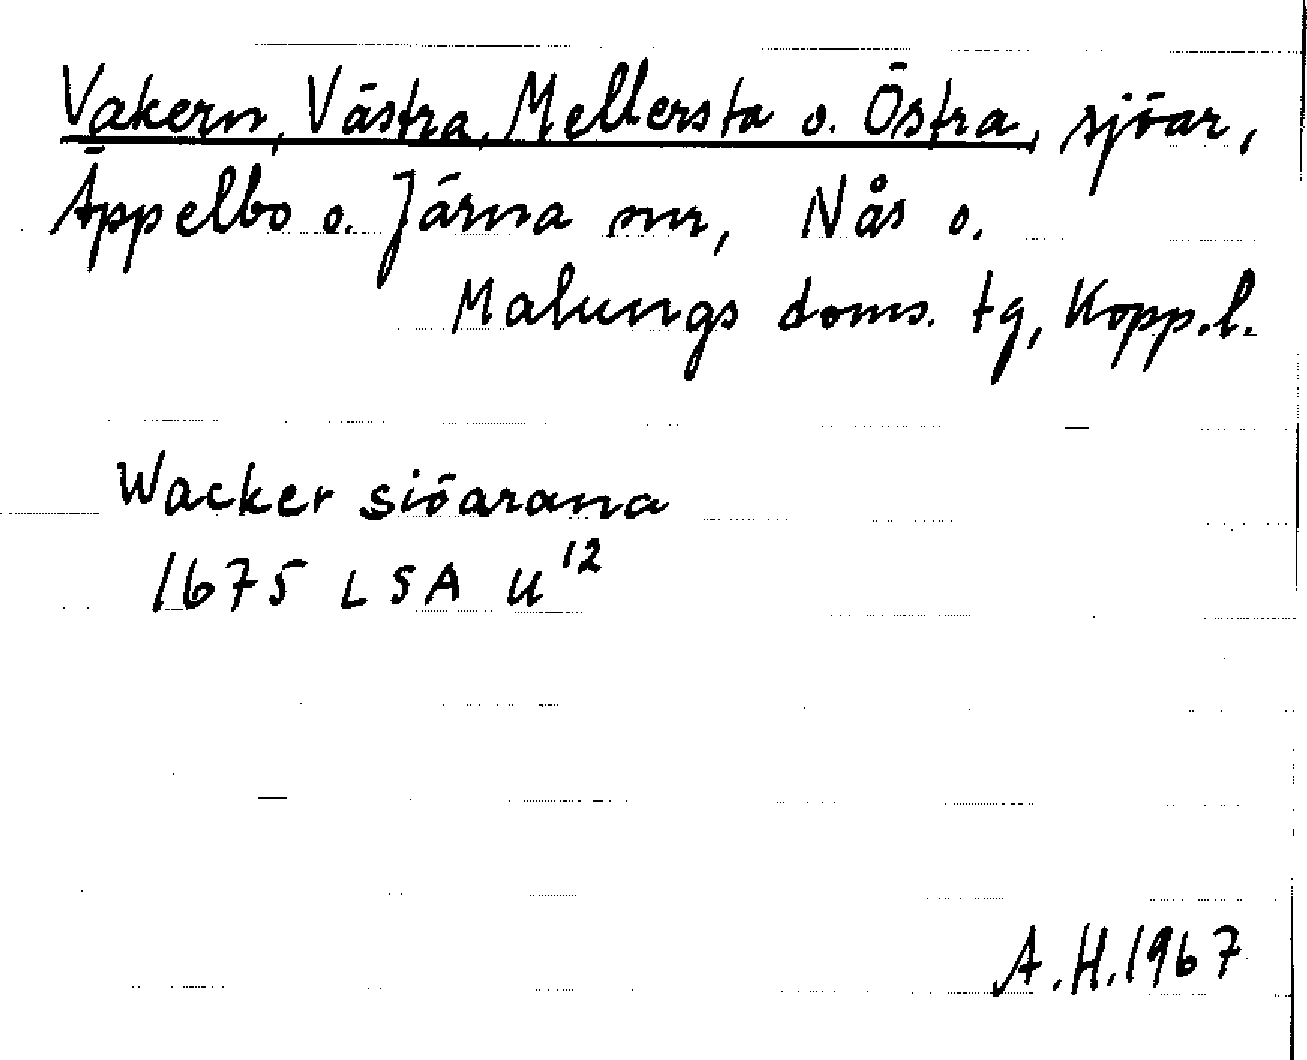 Vakern, Västra, Mellersta o. Östra, sjöar,
Äppelbo o. Järna snr, Nås o.
Malungs doms. tg, Kopp.l.
Wacker siöarana
1675 LSA U¹²
A.H.1967